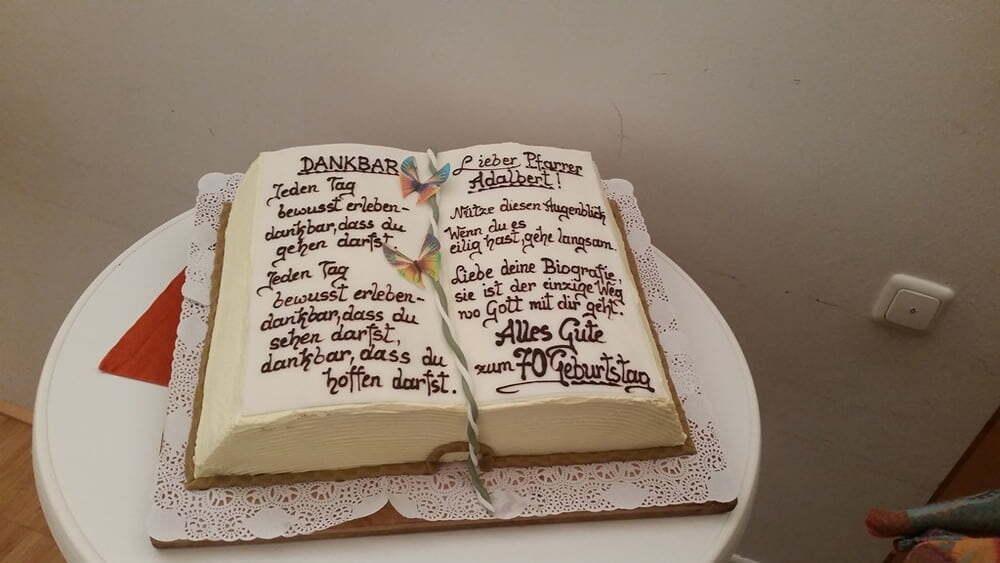 DANKBAR
Jeden Tag
bewusst erleben-
dankbar, dass du
gehen darfst.
Jeden Tag
bewusst erleben-
dankbar, dass du
sehen darfst,
dankbar, dass du
hoffen darfst.
Lieber Pfarrer
Adalbert!
Nütze diesen Augenblick
Wenn du es
eilig hast, gehe langsam.
Liebe deine Biografie,
sie ist der einzige Weg
wo Gott mit dir geht.
Alles Gute
zum 70 Geburtstag